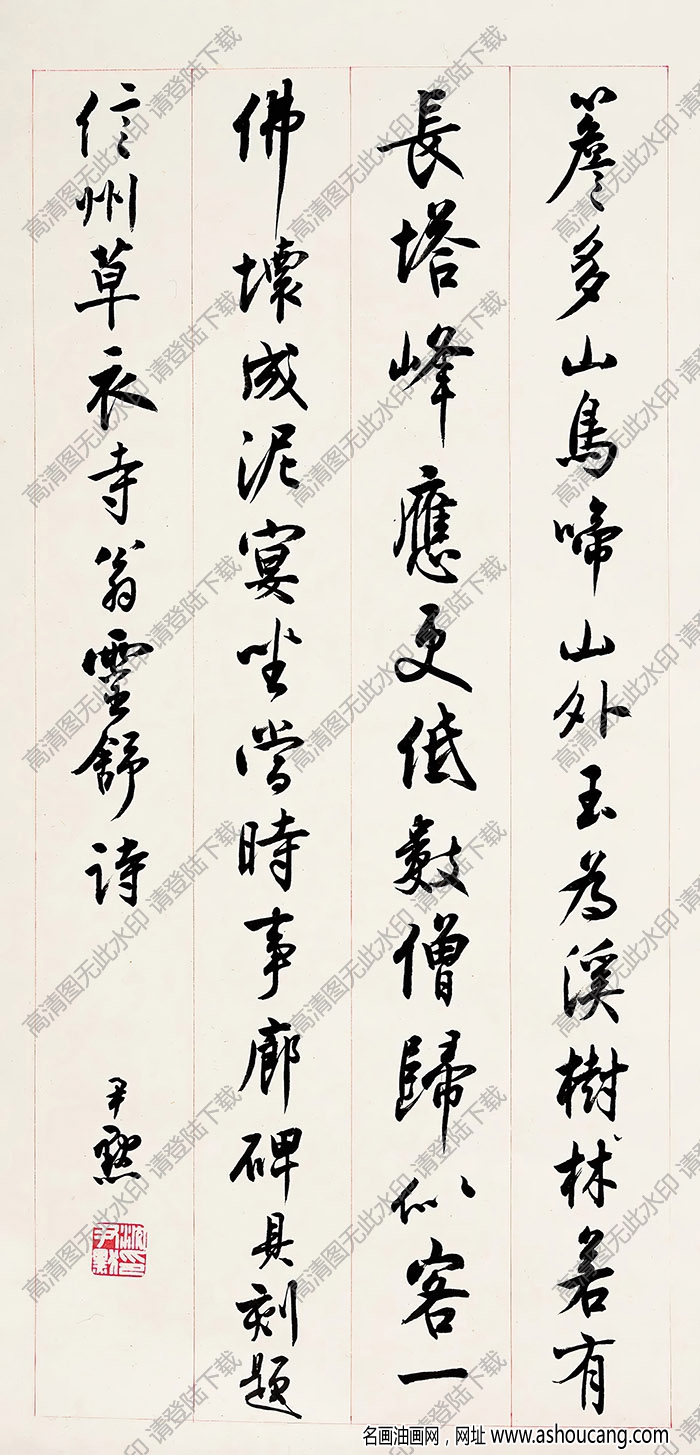 簷多山鳥啼山外玉為溪樹林若有
長塔峰應更低數僧歸似客一
佛壞成泥宴坐當時事廊碑具刻題
信州草衣寺翁靈舒詩
尹默
沈尹默印
高清图无此水印 请登陆下载
名画油画网，网址 www.ashoucang.com